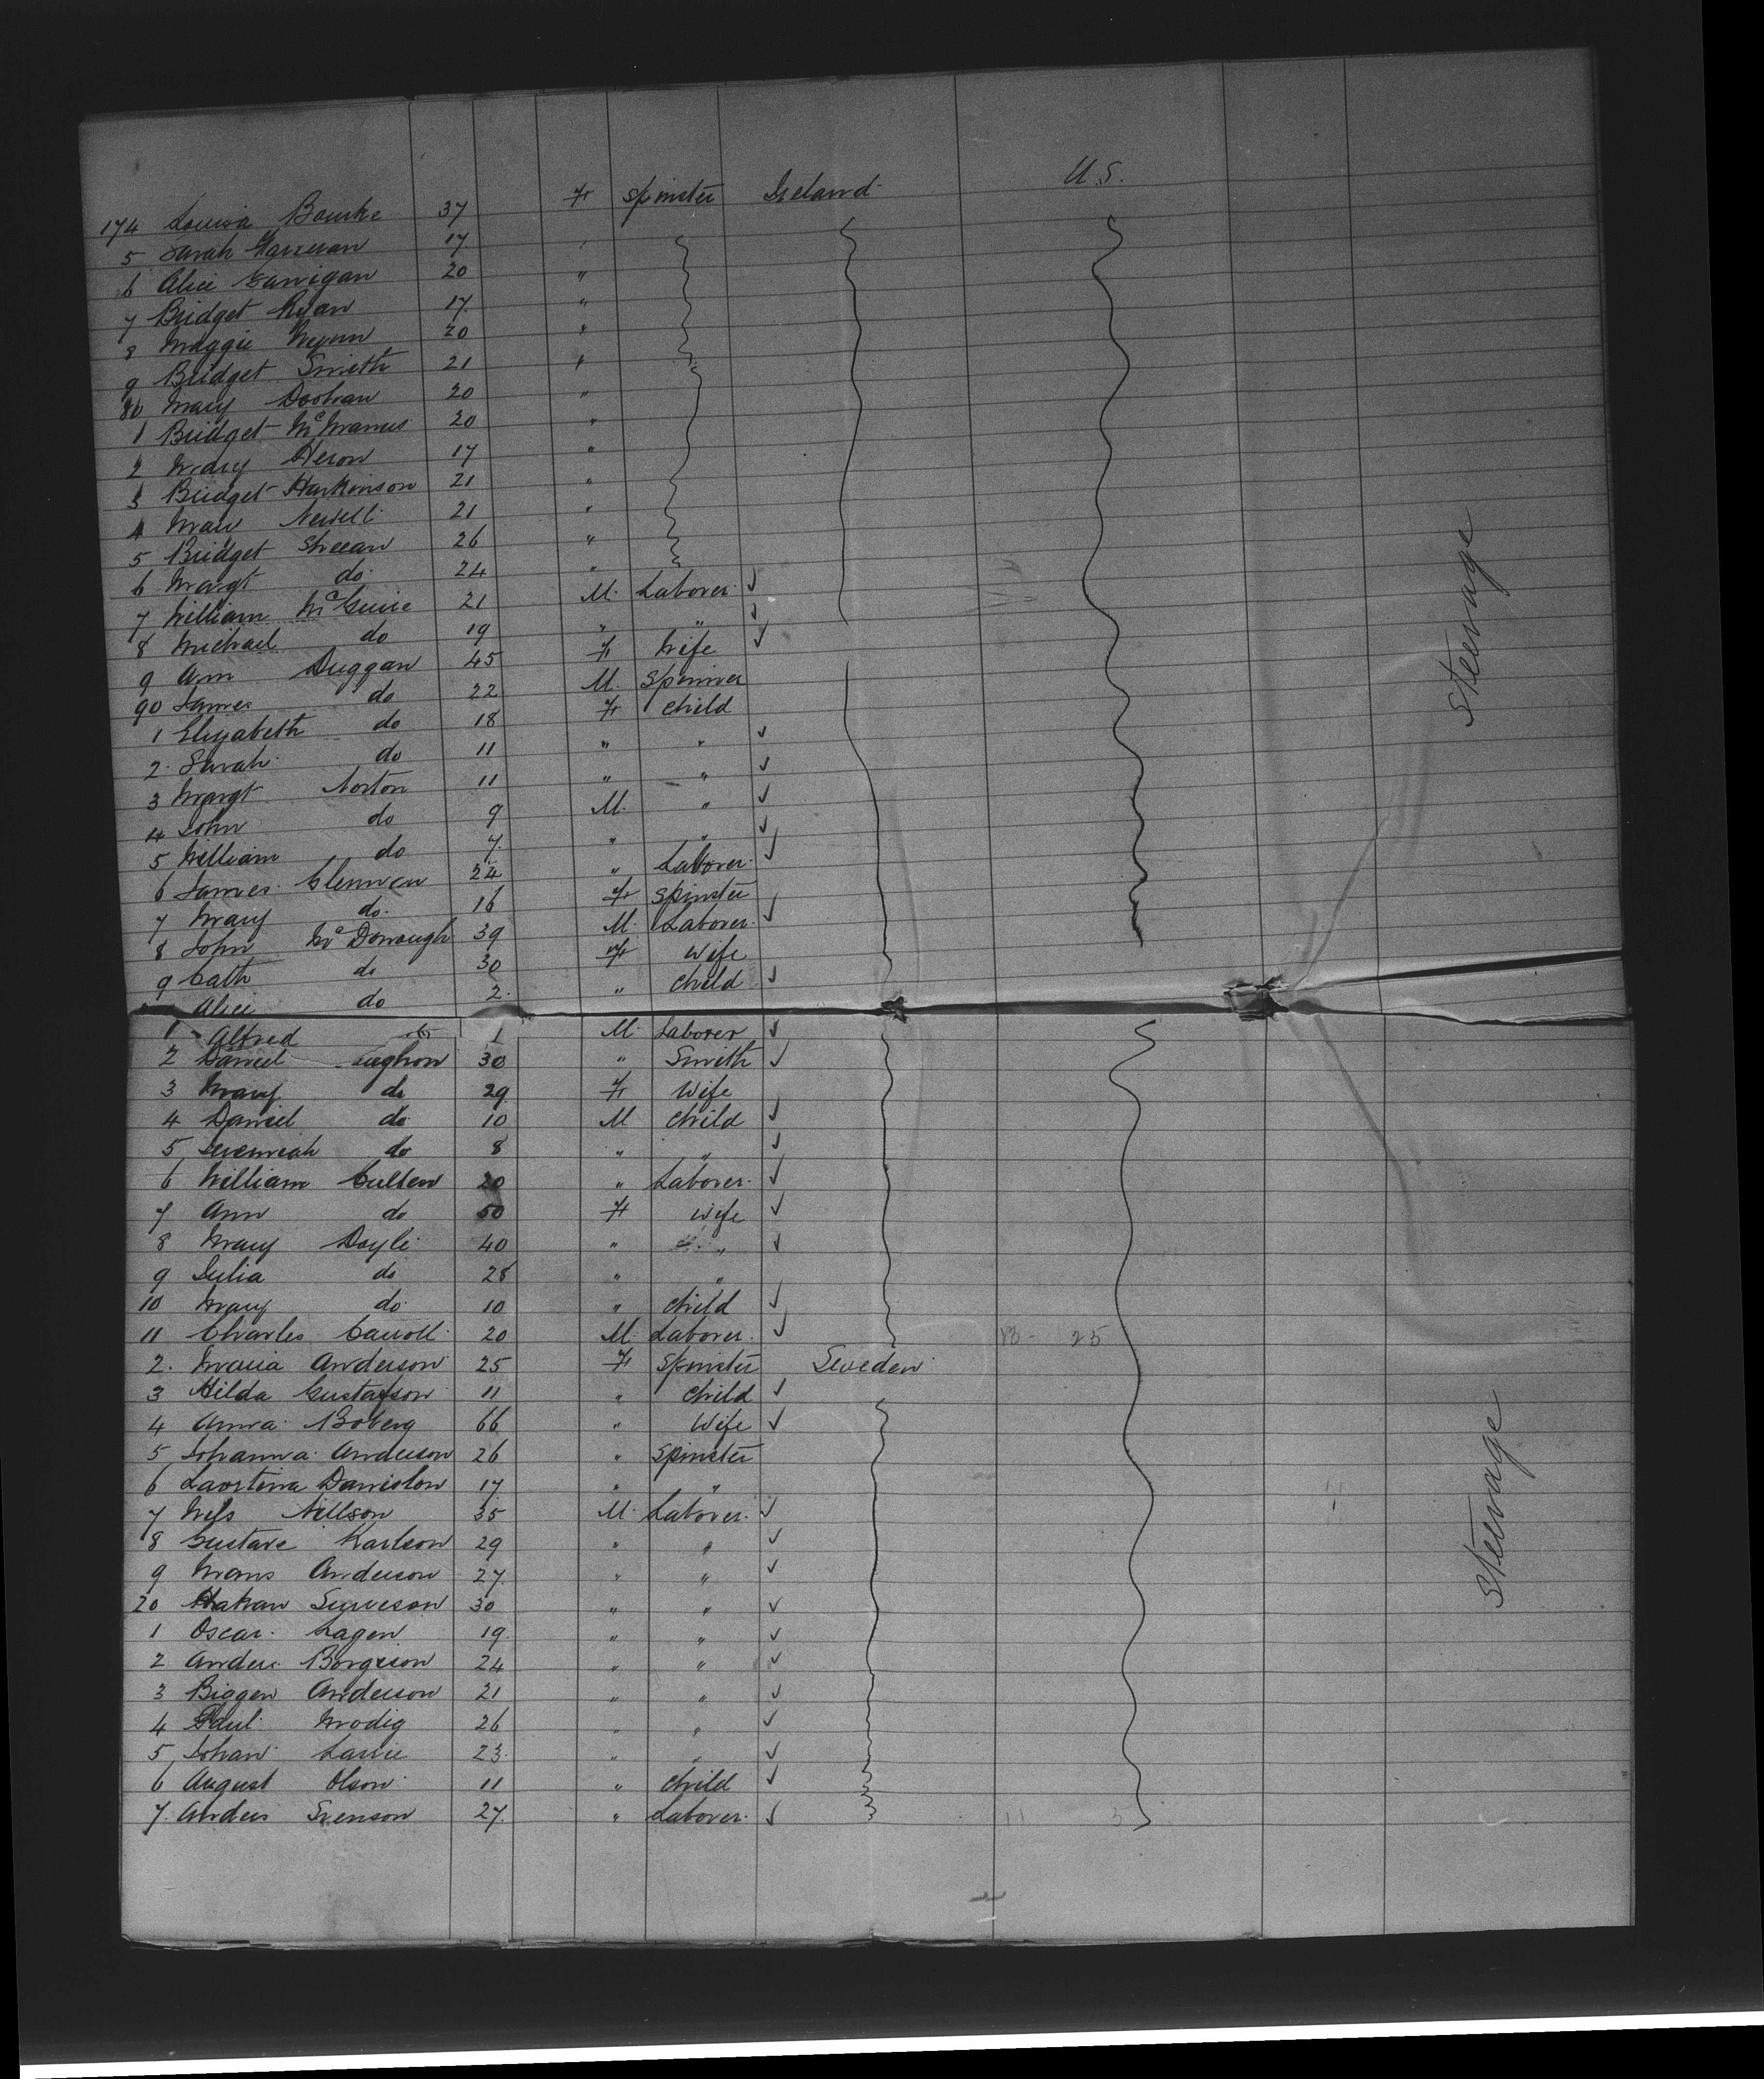 174 Louisa Bourke 37 F Spinster Ireland U.S.
5 Sarah 17 "
6 Alice Garrigan 20 "
7 Bridget Ryan 17 "
8 Maggie Wynn 20 "
9 Bridget Smith 21 "
80 Mary Doolan 20 "
1 Bridget McManus 20 "
2 Mary Heron 17 "
3 Bridget Harkinson 21 "
4 Mary Newell 21 "
5 Bridget Sheean 26 "
6 Margt do 24 "
7 William McGuire 21 M. Laborer
8 Michael do 19 " "
9 Ann Duggan 45 F Wife
90 James do 22 M. Spinner
1 Elizabeth do 18 F Child
2 Sarah do 11 " "
3 Margt Norton 11 " "
4 John do 9 M. "
5 William do 7 " "
6 James 24 " Laborer
7 Mary do 16 F Spinster
8 John McDonough 39 M. Laborer
9 Cath do 30 F Wife
Alice do 2 " Child
Steerage
1 Alfred do 1 M. Laborer
2 Daniel 30 " Smith
3 Mary do 29 F Wife
4 Daniel do 10 M Child
5 Jeremiah do 8 " "
6 William Cullen 20 " Laborer
7 Ann do 50 F Wife
8 Mary Doyle 40 " "
9 Julia do 28 " "
10 Mary do 10 " Child
11 Charles Carroll 20 M. Laborer 25
2 Maria Anderson 25 F Spinster Sweden
3 Hilda Gustafson 11 " Child
4 Anna Boberg 66 " Wife
5 Johanna Anderson 26 " Spinster
6 17 " "
7 Nels Nillson 35 M. Laborer
8 Gustave Karlson 29 " "
9 Mons Anderson 27 " "
20 Hakan 30 " "
1 Oscar Lagen 19 " "
2 Anders 24 " "
3 Biggen Anderson 21 " "
4 Paul Modig 26 " "
5 Johan 23 " "
6 August Olson 11 " Child
7 Anders Svenson 27 " Laborer
Steerage